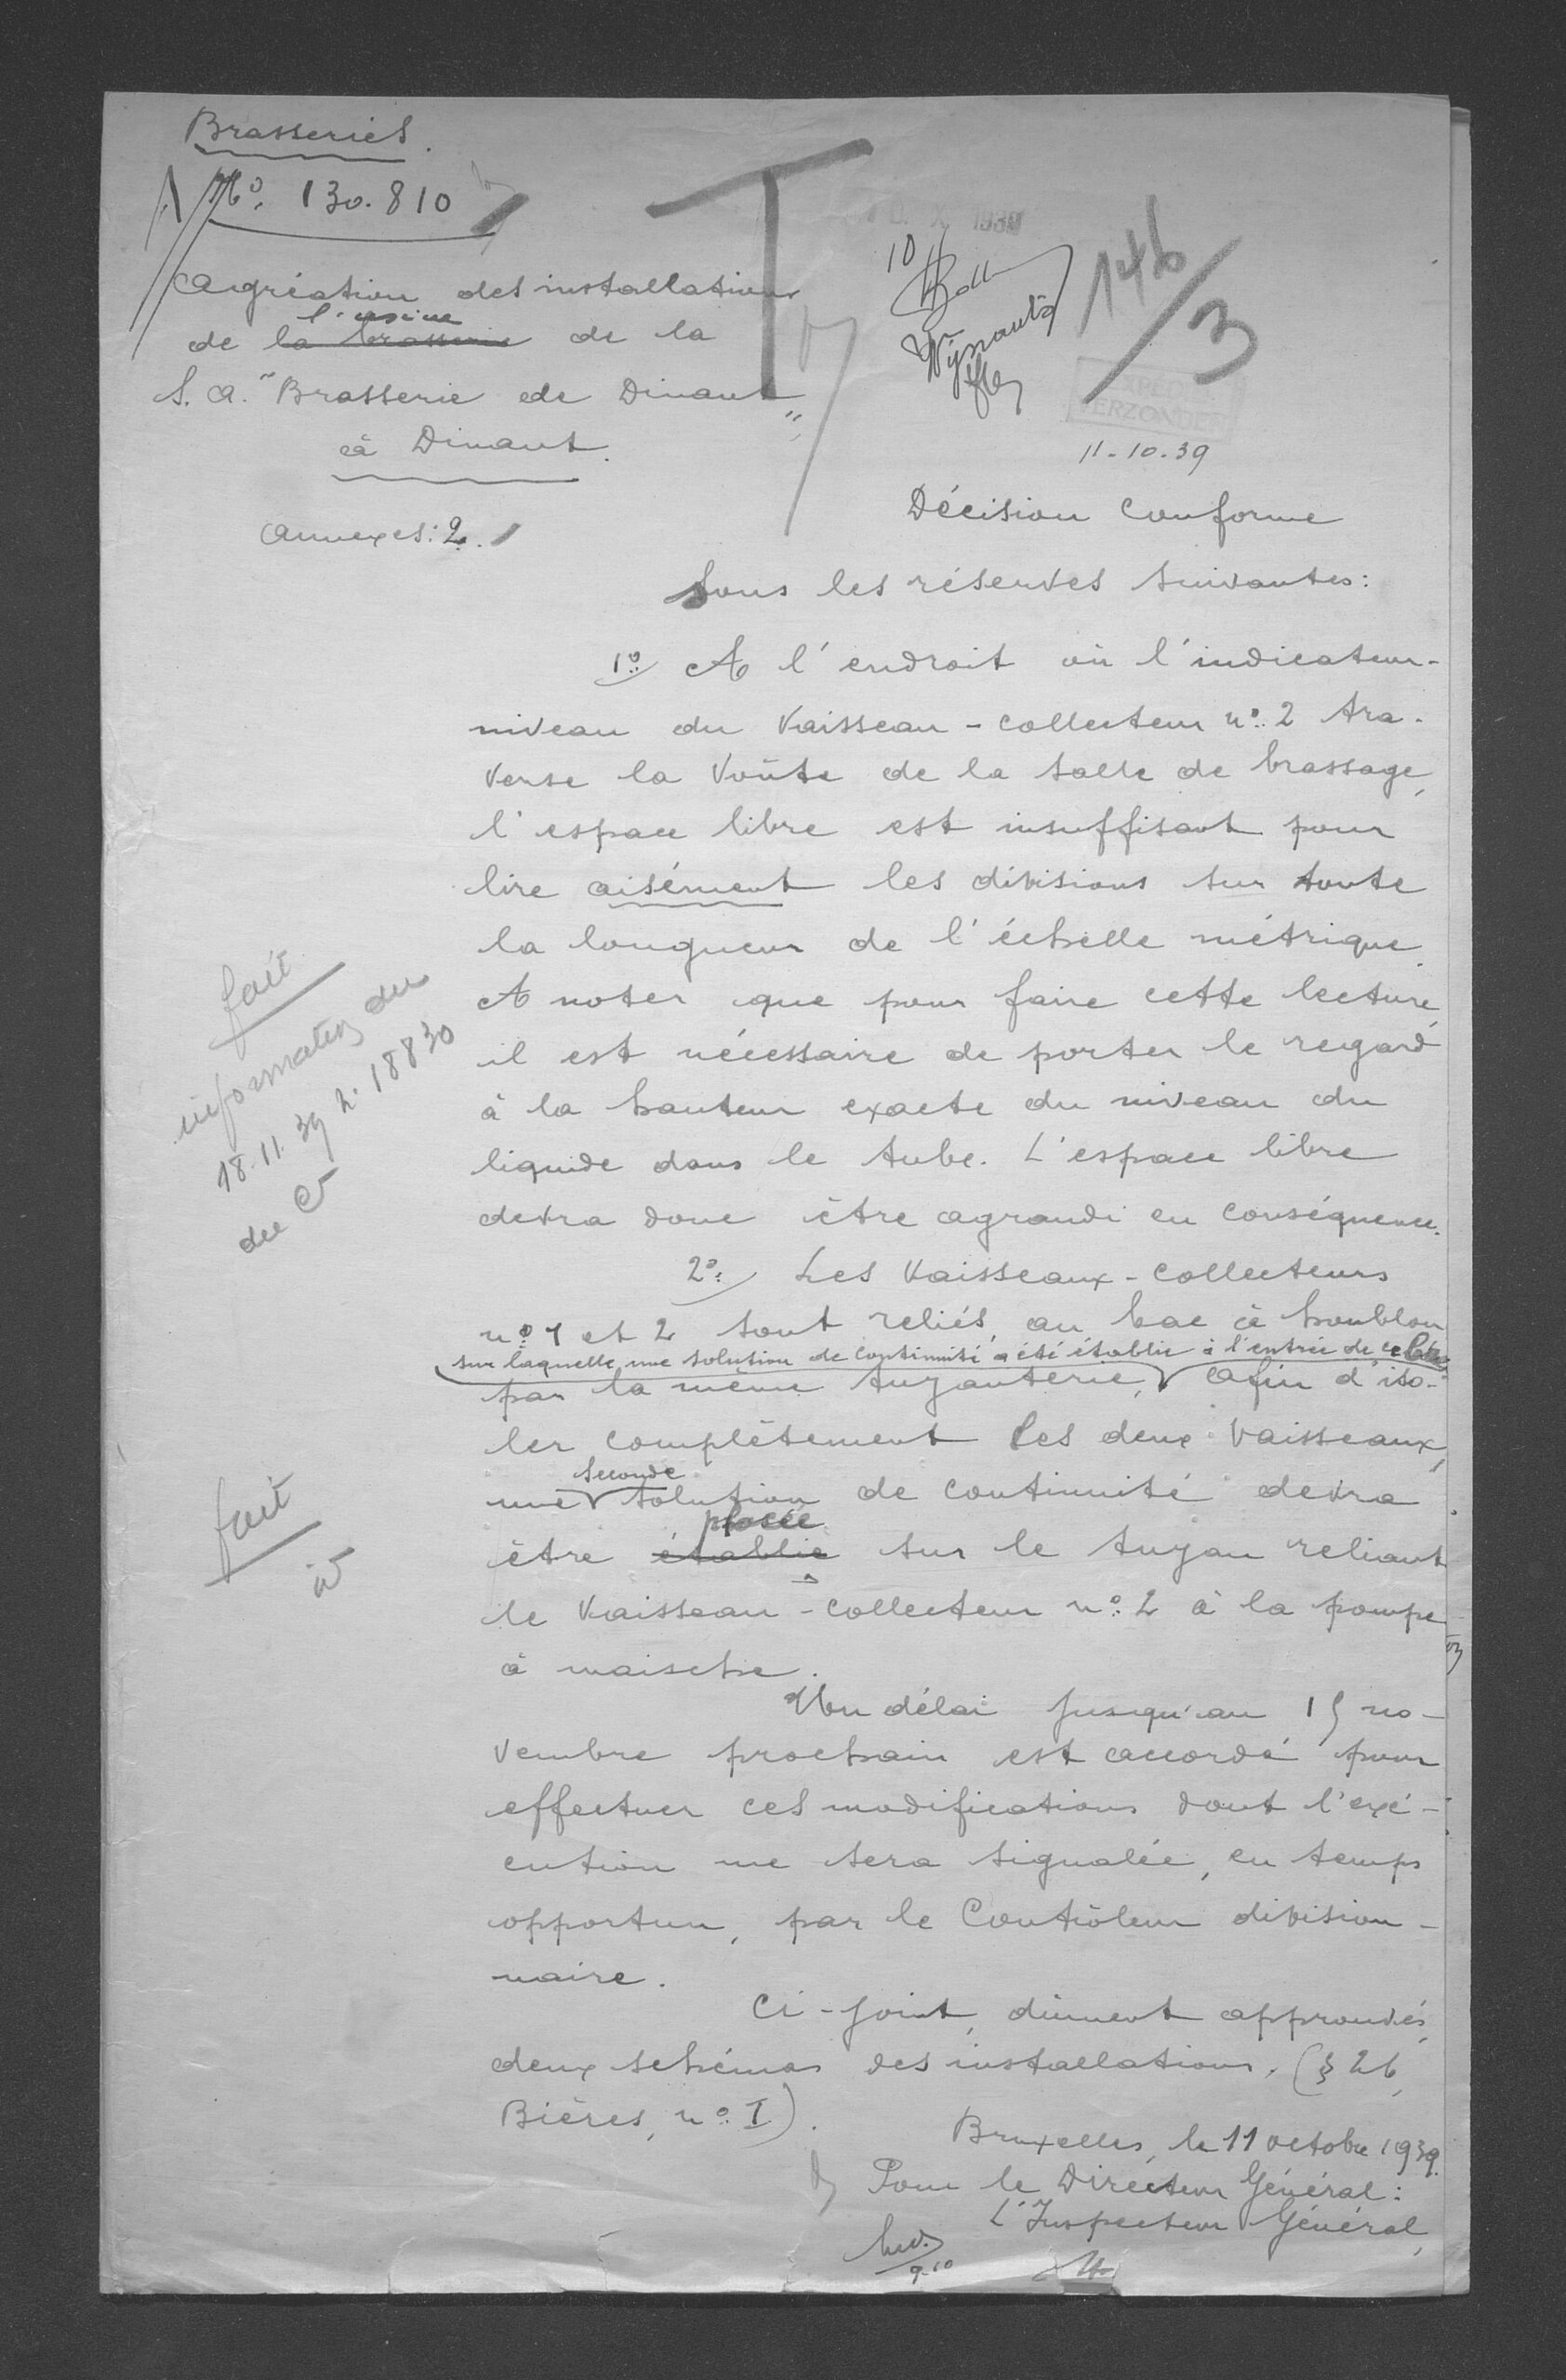 Brasseries.
No. 130.810
Agréation des installations
l'usine
de la brasserie de la
S.A. "Brasserie de Dinant"
à Dinant.
Annexes: 2.
1939
10
Wynants
146/3
EXPEDIE
VERZONDEN
11-10-39
Décision conforme
sous les réserves suivantes:
1º A l'endroit où l'indicateur-
niveau du vaisseau-collecteur nº 2 tra-
verse la voûte de la salle de brassage,
l'espace libre est insuffisant pour
lire aisément les divisions sur toute
la longueur de l'échelle métrique.
A noter que pour faire cette lecture,
il est nécessaire de porter le regard
à la hauteur exacte du niveau du
liquide dans le tube. L'espace libre
devra donc être agrandi en conséquence.
fait
information du
18.11.39 n. 18830
du C
2º Les vaisseaux-collecteurs
nº 1 et 2 sont reliés au bac à houblon
sur laquelle une solution de continuité a été établie à l'entrée de ce bac
par la même tuyauterie, Afin d'iso-
ler complètement les deux vaisseaux,
seconde
une solution de continuité devra
placée
être établie sur le tuyau reliant
le vaisseau-collecteur nº 2 à la pompe
à maische.
fait
Un délai jusqu'au 15 no-
vembre prochain est accordé pour
effectuer ces modifications dont l'exé-
cution me sera signalée, en temps
opportun, par le Contrôleur division-
naire.
Ci-joint, dûment approuvés,
deux schémas des installations. (§ 26,
Bières, nº I).
Bruxelles, le 11 octobre 1939.
Pour le Directeur Général:
L'Inspecteur Général,
9-10